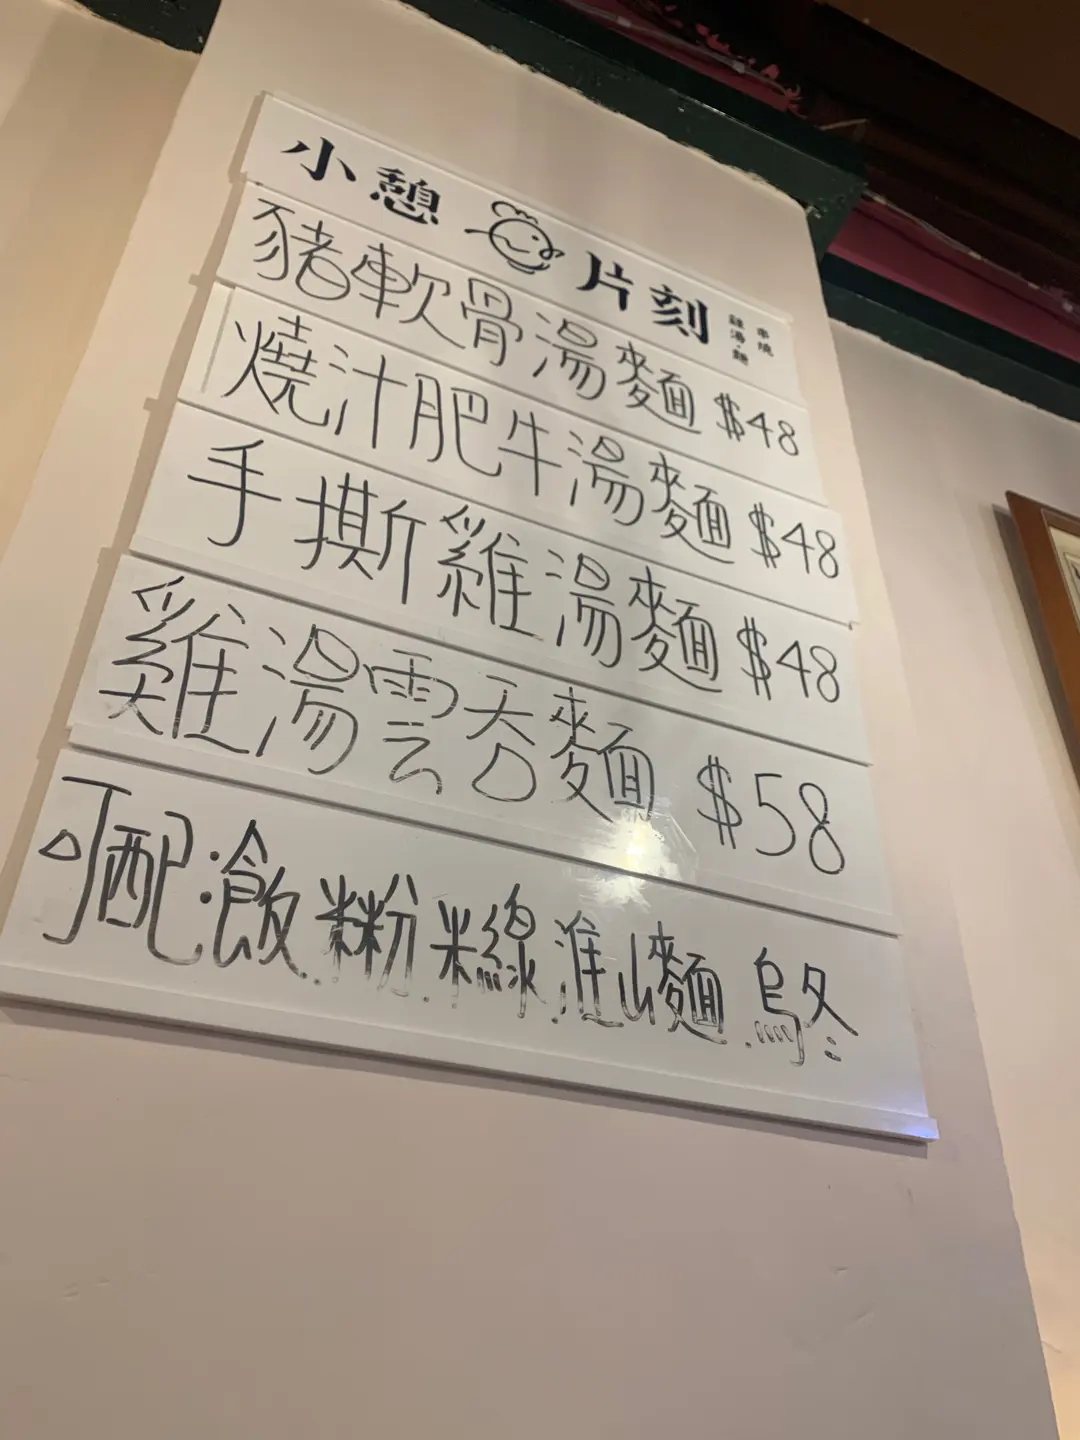 小憩片刻 串燒 雞湯·麵
豬軟骨湯麵 $48
燒汁肥牛湯麵 $48
手撕雞湯麵 $48
雞湯雲吞麵 $58
可配:飯.粉.米線.淮山麵.烏冬